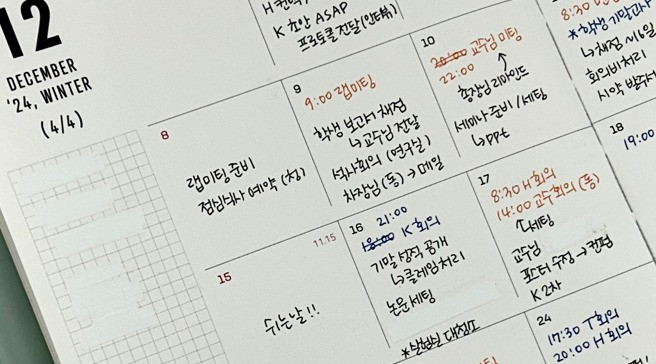 12
DECEMBER
'24, WINTER
(4/4)
K 초안 ASAP
프로토콜 전달 (인턴뷰)
8
랩미팅 준비
점심식사 예약 (청)
9
9:00 랩미팅
학생 보고서 채점
↳ 교수님 전달
석사회의 (연구실)
차장님 (동) → 메일
10
20:00 교수님 미팅
22:00
총장님 리마인드
세미나 준비 / 세팅
↳ ppt
8:30
*학생 기말과사
↳ 채점 ~16일
회의비 처리
시약 발주
15
11.15
쉬는날!!
16
21:00
18:00 K 회의
기말 성적 공개
↳ 클레임 처리
논문 세팅
*실험실 대청소
17
8:30 H 회의
14:00 교수회의 (동)
↳ 세팅
교수님
포스터 수정 → 컨펌
K 2차
18
19:00
24
17:30 T 회의
20:00 H 회의